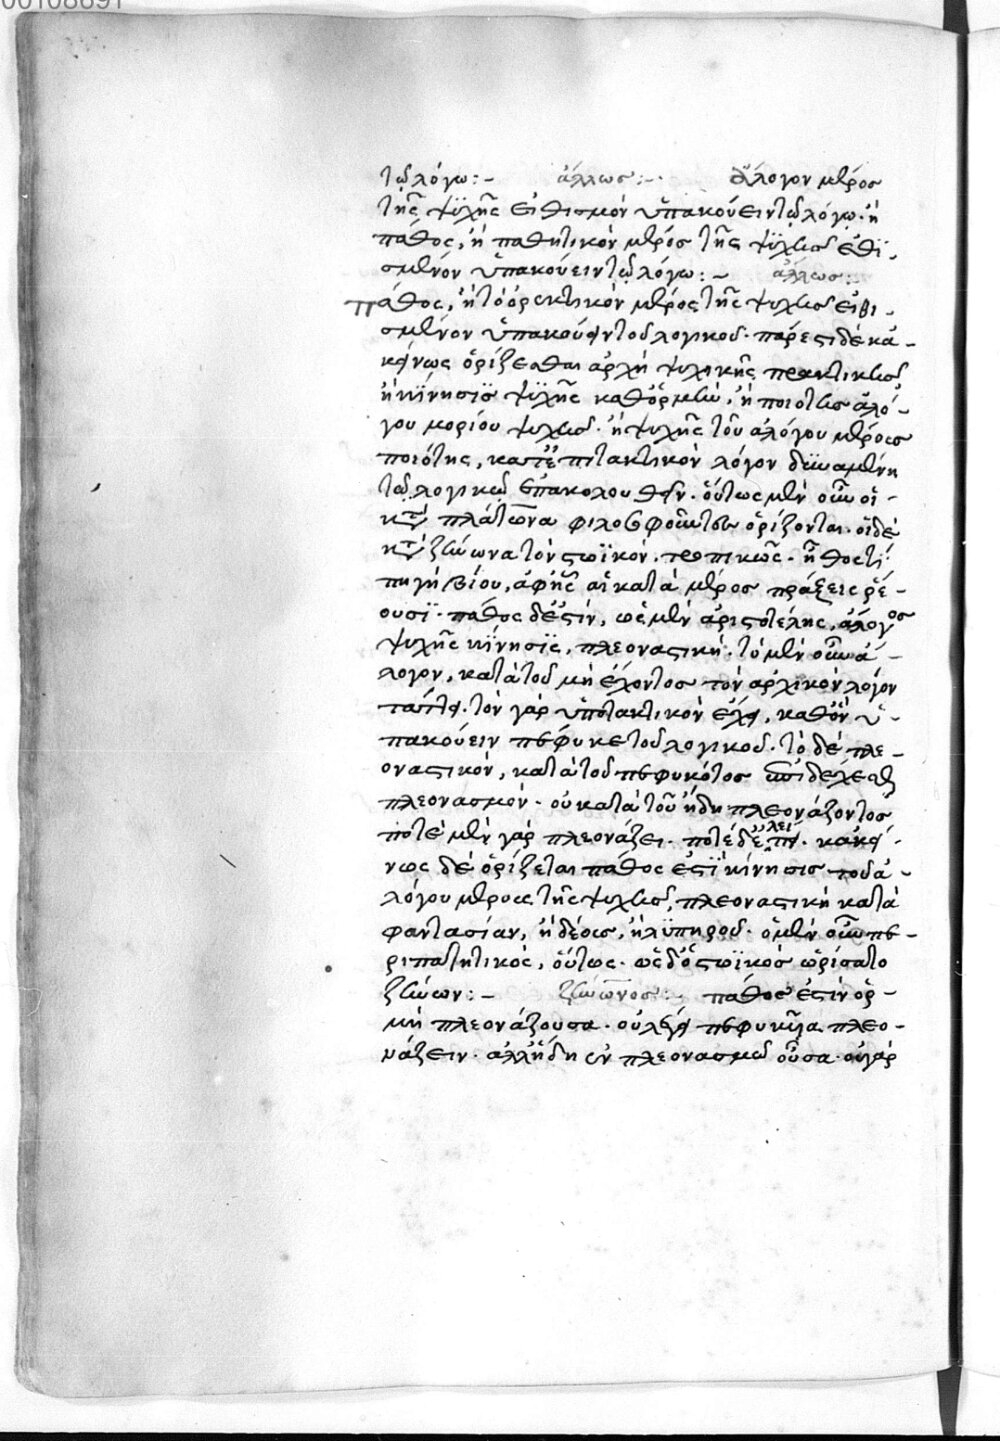 00108691
τῷ λόγω :– ἄλλως :– ἄλογον μέρος
τῆς ψϋχῆς εἰθισμόν ὑπακούειν τῷ λόγῳ. ἢ
πάθος, ἢ παθητικὸν μέρος τῆς ψϋχῆς εἰθϊ-
σμένον ὑπακούειν τῷ λόγω :– ἄλλως :–
πάθος, ἢ τὸ ὀρεκτικὸν μέρος τῆς ψυχῆς εἰθι-
σμένον ὑπακούειν τοῦ λογικοῦ. πάρεστι δὲ κἀ-
κείνως ὁρίζεσθαι ἀρχὴ ψυχικῆς πρακτικῆς
ἢ κίνησϊς ψϋχῆς καθ' ὁρμὴν, ἢ ποιότης ἀλό-
γου μορίου ψυχῆς. ἢ ψυχῆς τοῦ ἀλόγου μέρους
ποιότης, κατ' ἐπιτακτικὸν λόγον δυναμένη
τῷ λογικῷ ἐπακολουθεῖν. οὕτως μὲν οὖν οἱ
κατὰ πλάτωνα φιλοσοφοῦντες ὁρίζονται. οἱ δὲ
κατὰ ζήνωνα τὸν στωϊκὸν, τροπικῶς. ἦθος ἐστὶ
πηγὴ βίου, ἀφ' ἧς αἱ κατὰ μέρος πράξεις ῥέ-
ουσϊ. πάθος δ' ἐστὶν, ὡς μὲν ἀριστοτέλης, ἄλογος
ψυχῆς κίνησϊς, πλεοναστική. τὸ μὲν οὖν ἄ-
λογον, κατὰ τοῦ μὴ ἔχοντος τὸν ἀρχικὸν λόγον
τάττει. τὸν γὰρ ὑποτακτικὸν ἔχει, καθ' ὃν ὑ-
πακούειν πέφυκε τοῦ λογικοῦ. τὸ δὲ πλε-
οναστικὸν, κατὰ τοῦ πεφυκότος ἐπιδέχεσθαι
πλεονασμόν. οὐ κατὰ τοῦ ἤδη πλεονάζοντος
ποτὲ μὲν γὰρ πλεονάζει. ποτὲ δ' ἐλλείπει. κἀκεί-
νως δὲ ὁρίζεται πάθος ἐστϊ κίνησις τοῦ ἀ-
λόγου μέρους τῆς ψυχῆς, πλεοναστικὴ κατὰ
φαντασίαν, ἡδέος, ἢ λϋπηροῦ. ὁ μὲν οὖν πε-
ριπατητικὸς, οὕτως. ὡς δ' ὁ στωϊκὸς ὡρίσατο
ζήνων :– ζήνωνος :– πάθος ἐστὶν ὁρ-
μὴ πλεονάζουσα. οὐ λέγει πεφυκυῖα πλεο-
νάζειν. ἀλλ' ἤδη ἐν πλεονασμῷ οὖσα. οὐ γὰρ